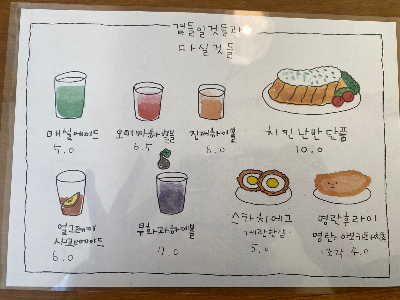 곁들일것들과
마실것들
매실에이드
5.0
오미자하이볼
6.5
진저하이볼
6.0
치킨난반단품
10.0
얼그레이
6.0
무화과하이볼
스카치에그
계란한알
5.0
명란후라이
명란
조각 4.0